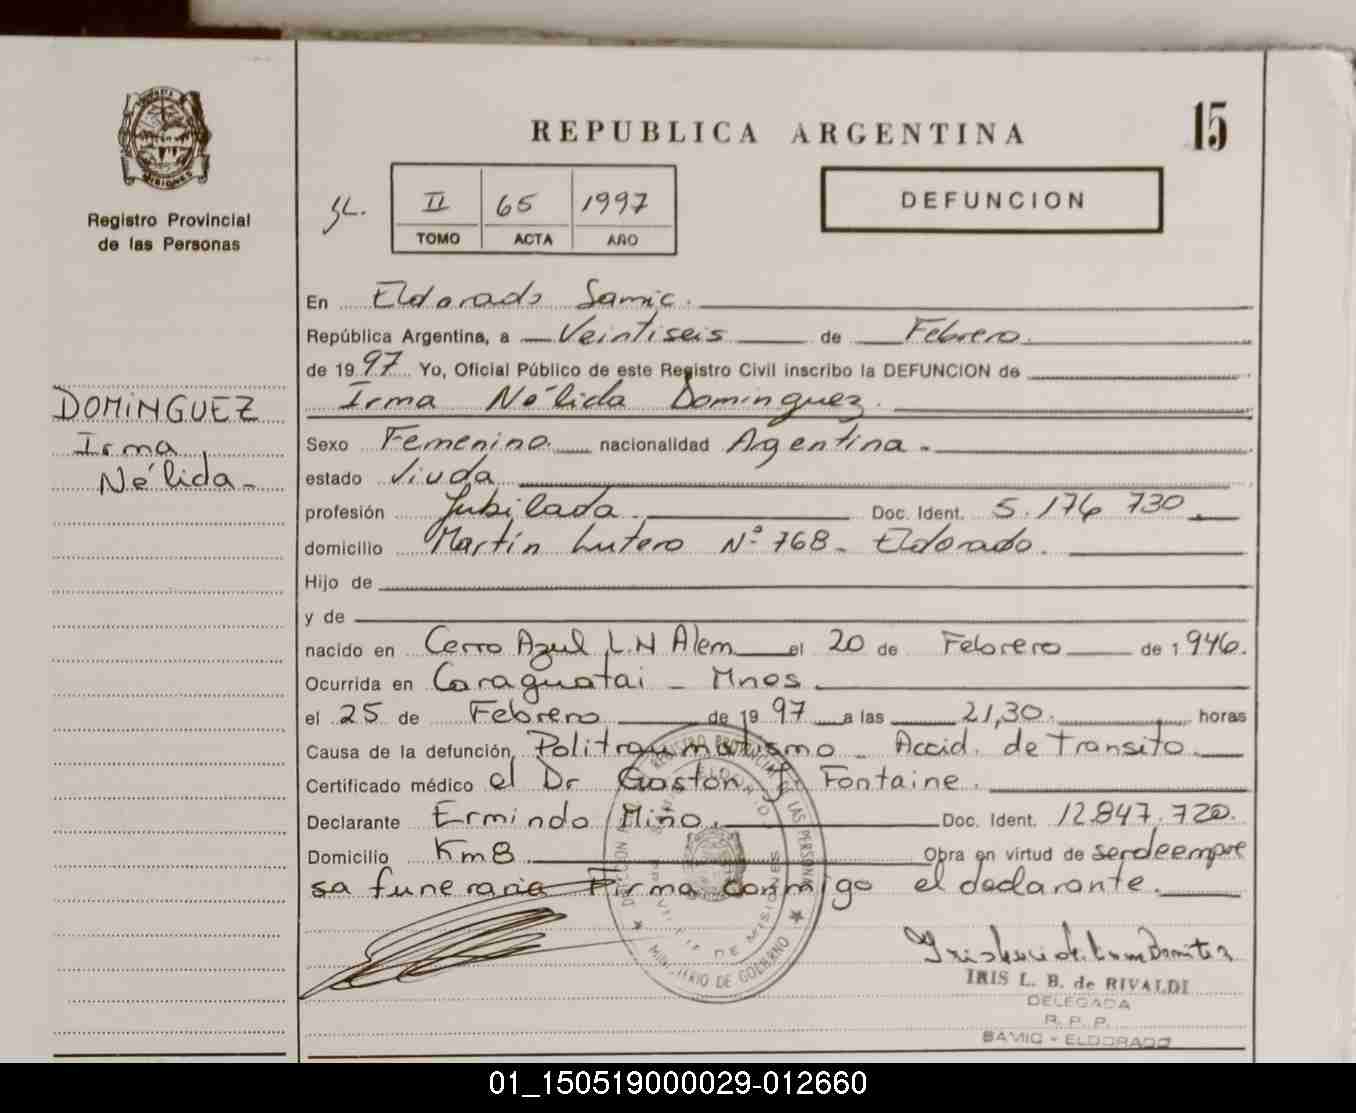 MISIONES
Registro Provincial
de las Personas
DOMINGUEZ
Irma
Nélida-
15
REPUBLICA ARGENTINA
II 65 1997
TOMO ACTA AÑO
DEFUNCION
En Eldorado Samic.
República Argentina, a Veintiseis de Febrero.
de 1997 Yo, Oficial Público de este Registro Civil inscribo la DEFUNCION de
Irma Nélida Dominguez.
Sexo Femenino. nacionalidad Argentina-
estado Viuda
profesión Jubilada. Doc. Ident. 5.176 730
domicilio Martín Lutero Nº 768- Eldorado.
Hijo de
y de
nacido en Cerro Azul L.N Alem el 20 de Febrero de 1946.
Ocurrida en Caraguatai - Mnes.
el 25 de Febrero de 1997 a las 21,30. horas
Causa de la defunción Politraumatismo - Accid. de Transito.
Certificado médico el Dr Gaston J Fontaine.
Declarante Ermindo Miño. Doc. Ident. 12.847.720.
Domicilio Km8 Obra en virtud de serdeempre
sa funeraria Firma conmigo el declarante.
REGISTRO PROVINCIAL DE LAS PERSONAS
MINISTERIO DE GOBIERNO
DE MISIONES
IRIS L. B. de RIVALDI
DELEGADA
R. P. P.
SAMIC - ELDORADO
01_150519000029-012660